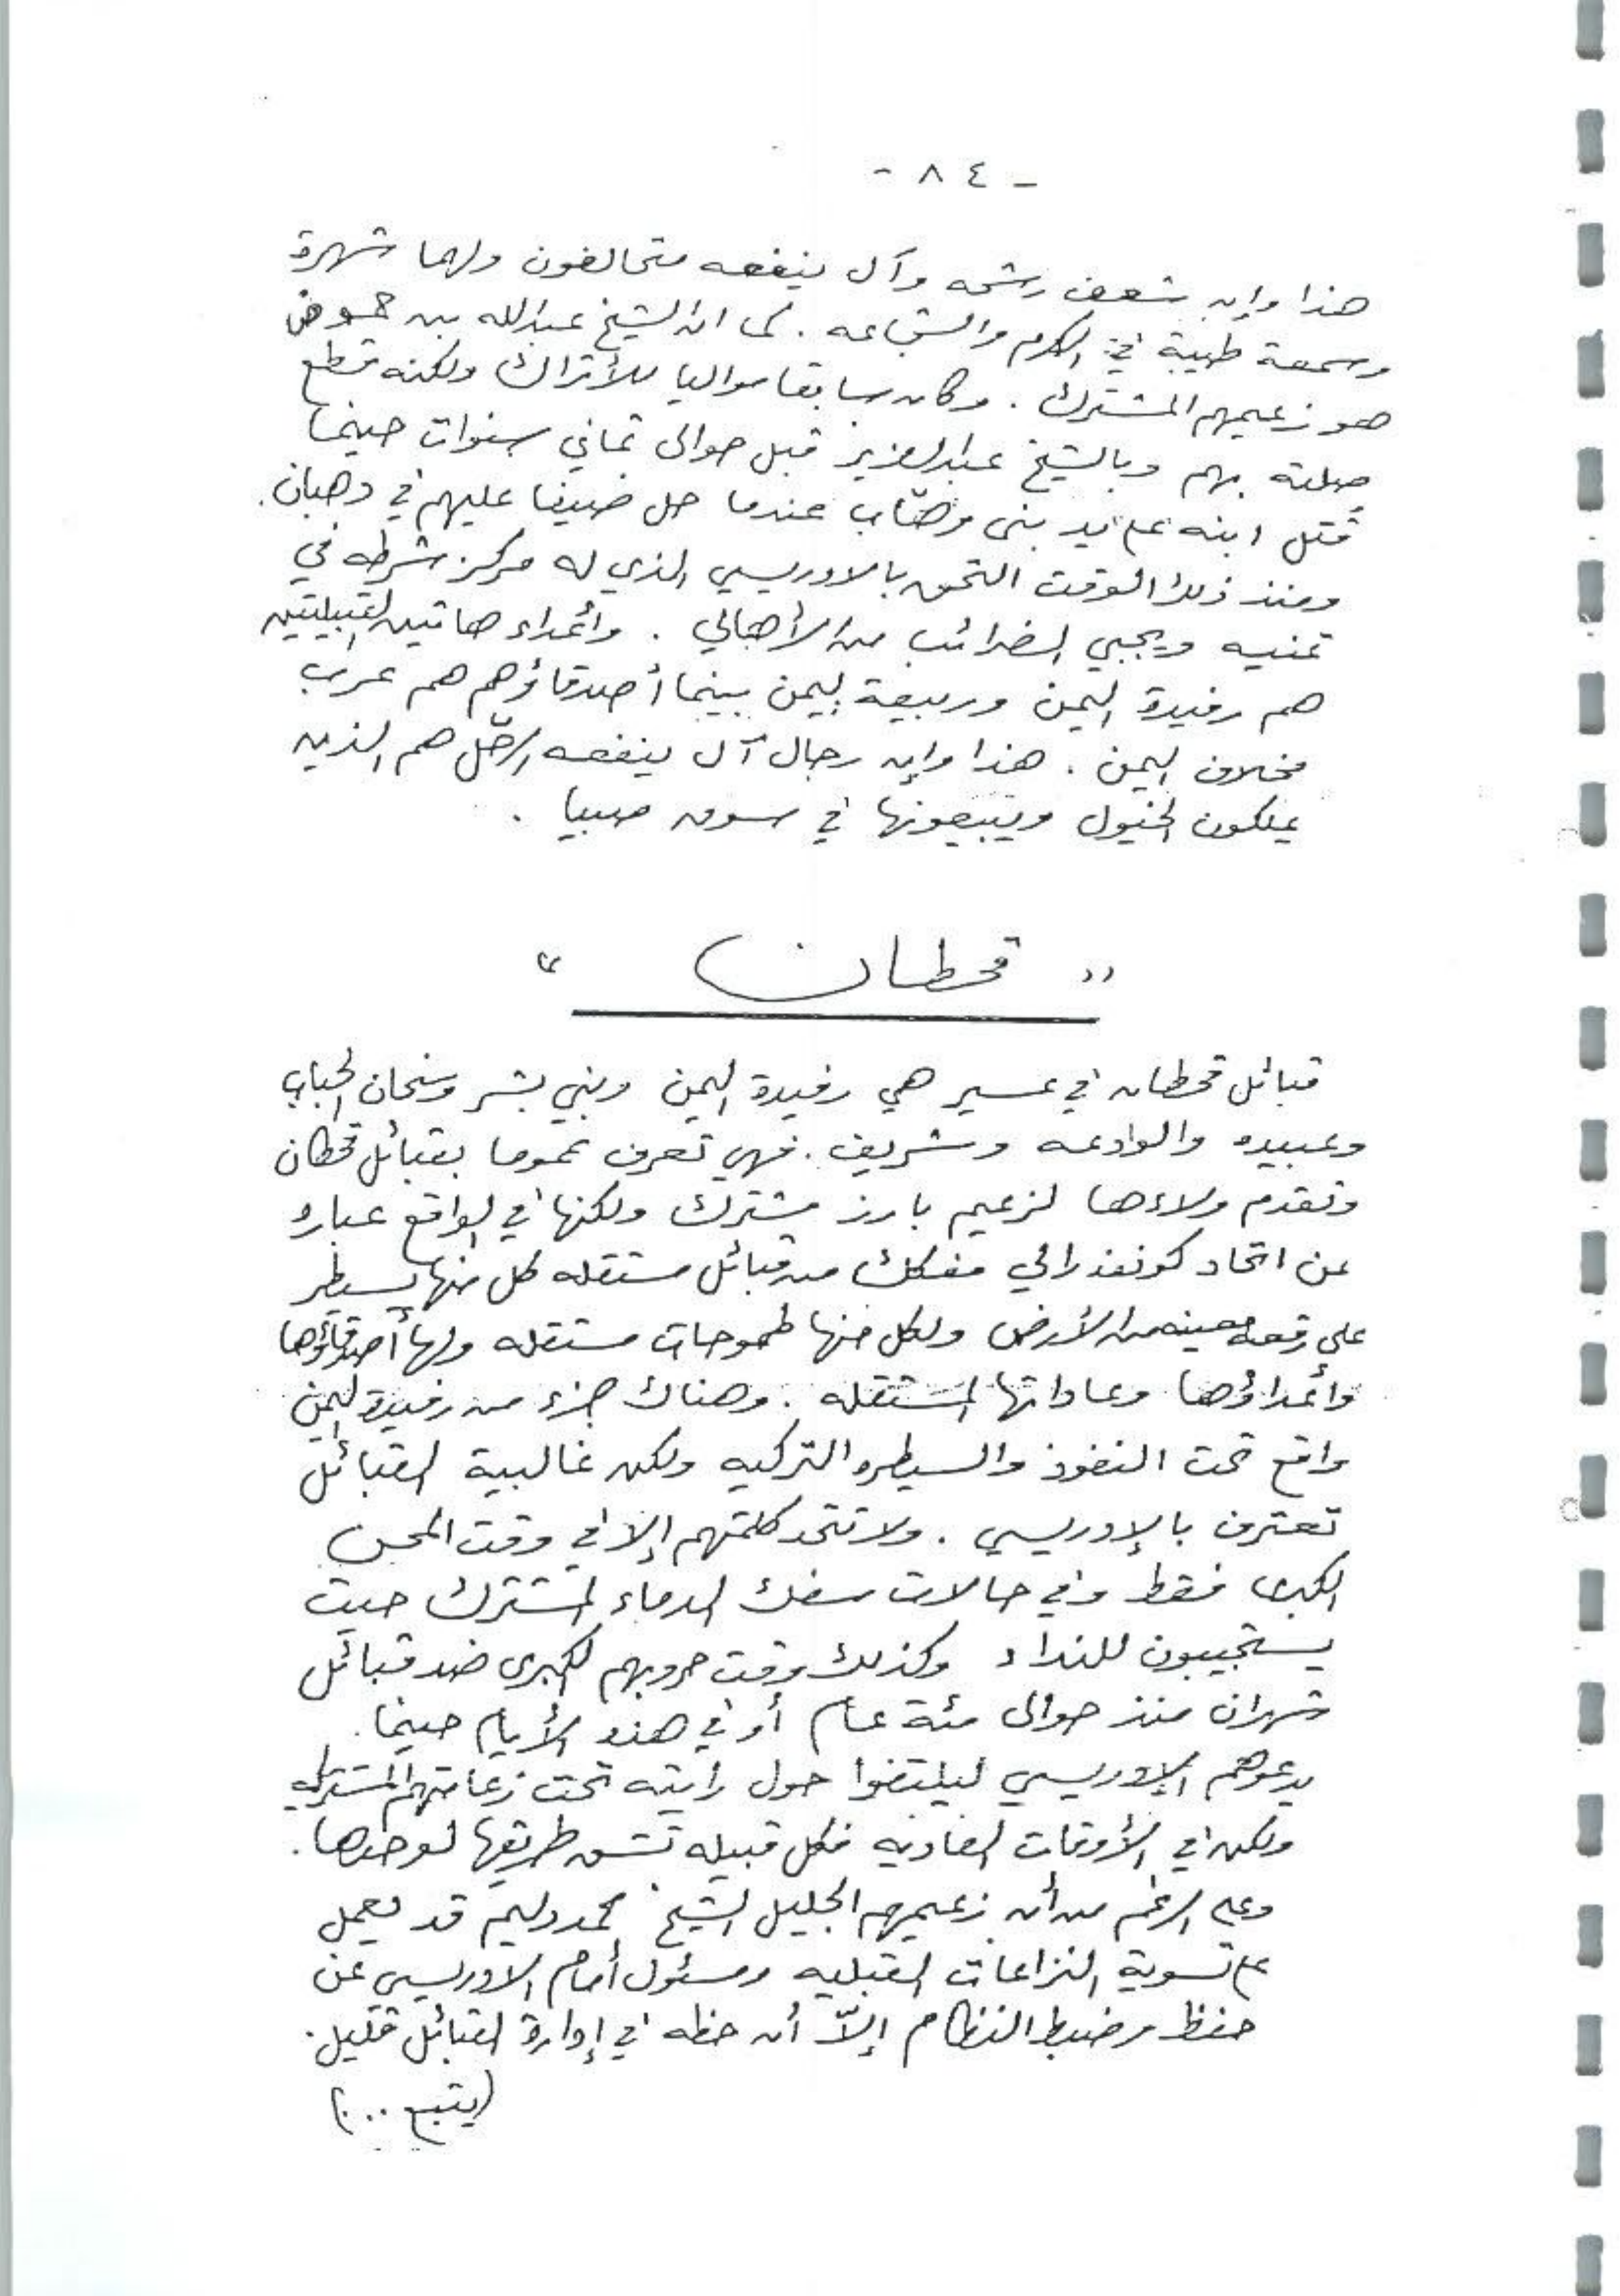 - ٨٤ -
هذا وإن شعف رشحه وآل ينفعه متحالفون ولهما شهرة
وسمعة طيبة في الكرم والشجاعه . كما ان الشيخ عبدالله بن حموض
هو زعيمهم المشترك . وكان سابقا مواليا للأتراك ولكنه قطع
صلته بهم وبالشيخ عبدالعزيز قبل حوالى ثماني سنوات حينما
قتل ابنه على يد بنى وهّاب عندما حل ضيفا عليهم في دهبان .
ومنذ ذلك الوقت التحق بالادريسي الذي له مركز شرطه في
تمنيه ويجبي الضرائب من الأهالي . وأعداء هاتين القبيلتين
هم رفيدة اليمن وربيعة اليمن بينما أصدقاؤهم هم عرب
مخلاف اليمن . هذا وإن رجال آل ينفعه الرحّل هم الذين
يملكون الخيول ويبيعونها في سوق صبيا .
" قحطان "
قبائل قحطان في عسير هي رفيدة اليمن وبني بشر وسنحان الحباب
وعبيده والوادعه وشريف . فهي تعرف عموما بقبائل قحطان
وتقدم ولاءها لزعيم بارز مشترك ولكنها في الواقع عباره
عن اتحاد كونفذرالي مفكك من قبائل مستقله كل منها يسيطر
على رقعه معينه من الأرض ولكل منها طموحات مستقله ولها أصدقاؤها
وأعداؤها وعاداتها المستقله . وهناك جزء من رفيدة اليمن
واقع تحت النفوذ والسيطره التركيه ولكن غالبية القبائل
تعترف بالإدريسي . ولا تتحد كلمتهم إلا في وقت المحن
الكبرى فقط وفي حالات سفك الدماء المشترك حيث
يستجيبون للنداء وكذلك وقت حروبهم الكبرى ضد قبائل
شهران منذ حوالى مئة عام أو في هذه الأيام حينما
يدعوهم الإدريسي ليلتفوا حول رايته تحت زعامتهم المشتركه
ولكن في الأوقات العاديه فكل قبيله تشق طريقها لوحدها .
وعلى الرغم من أن زعيمهم الجليل الشيخ محمد دليم قد يعمل
على تسوية النزاعات القبليه ومسئول أمام الادريسي عن
حفظ وضبط النظام إلاّ أن حظه في إدارة القبائل قليل .
(يتبع ...)